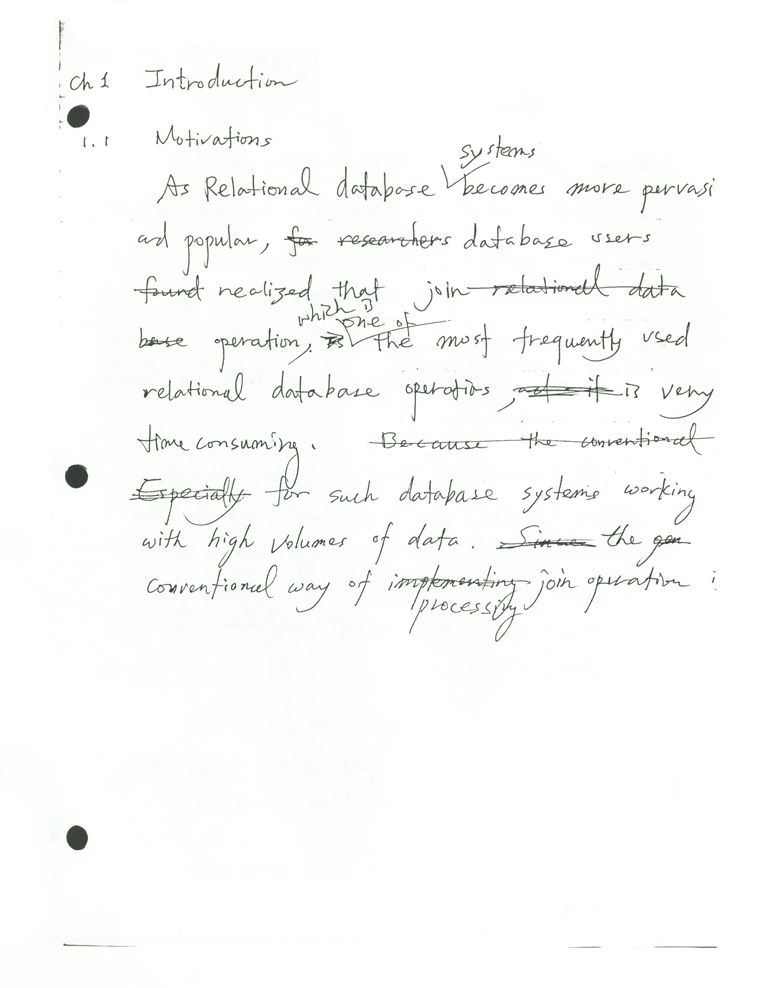 Ch 1 Introduction
1.1 Motivations
systems
As Relational database becomes more pervasi
and popular, for researchers database users
found realized that join relational data
which is one of
base operation, is the most frequently used
relational database operations, and it is very
time consuming. Because the conventional
Especially for such database systems working
with high volumes of data. Since the gen
conventional way of implementing join operation i
processing